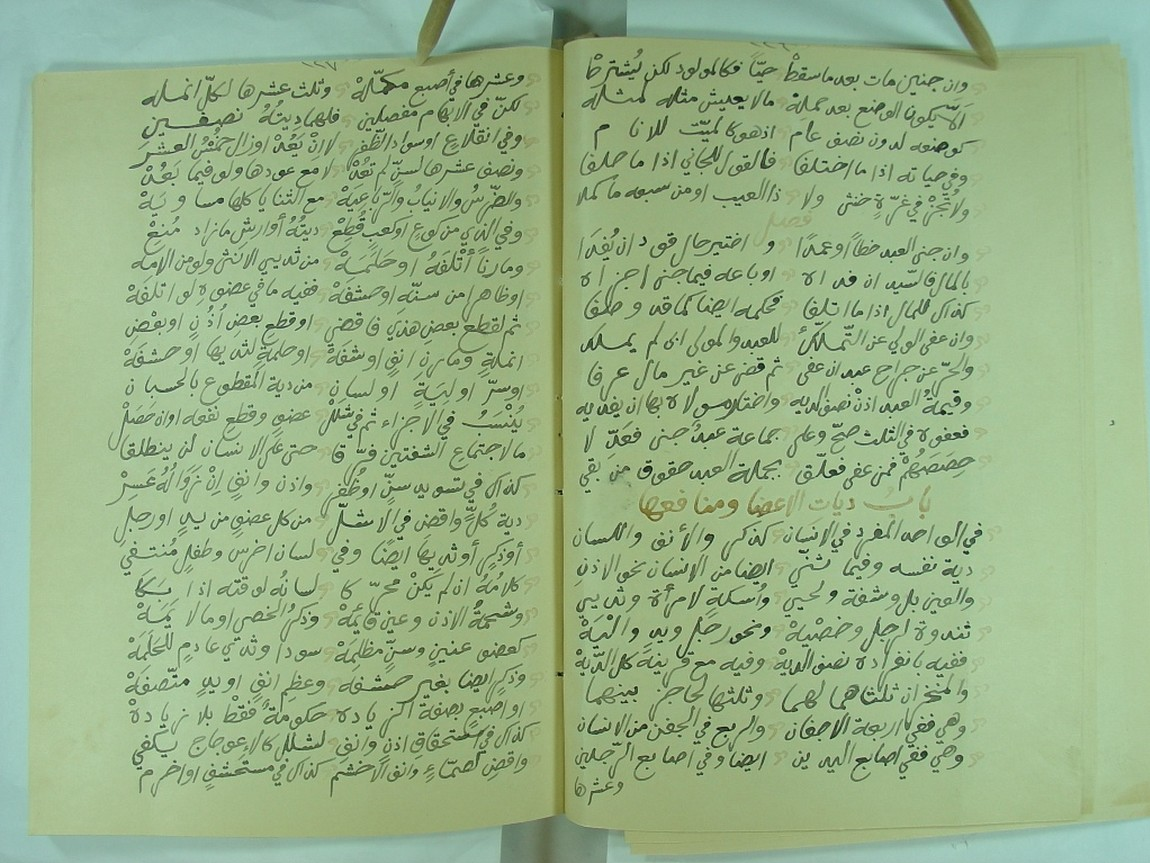 وان جنين مات بعد ما سقط حيّا فكالمولود لكن يُشترط
الّا يكون الوضع بعد حمله مالا يعيش مثله كمثله
كوضعه لدون نصف عام اذ هو كالميّت للانام
وفي حياته اذا ما اختلفا فالقول للجاني اذا ما حلفا
ولا تجز في غرّةٍ خنثى ولا ذا العيب او من سبعه ما كملا
فصل
وان جنى العبد خطاً او عمدًا واختير حال قود ان يُفدا
بالمال فالسّيد ان فداه او باعه فيما جنى اجزاه
كذاك للمال اذا ما اتلفا فحكمه ايضا كما قد وصفا
وان عفى الولي عن التّملّك للعبد والمولى ابى لم يملك
والحرّ عن جراح عبد ان عفى ثم قضى عن غير مال عرفا
وقيمة العبد اذنْ نصف الديه واختار مولاه بها ان يفديه
فعفوه في الثلث صحّ وعلى جماعة عبدٌ جنى فعَدّ لا
حِصَصَهُمْ فمن عفى فعلّق بجملة العبد حقوق من بقي
باب ديات الاعضا ومنافعها
في الواحد المفرد في الانسان كذكر والأنف واللسان
دية نفسه وفيما ثنّي ايضا من الانسان نحو الاذن
والعين بل وشفة ولحيي وأسكة لامرأة وثديي
ثندوة الرجل وخصيهْ ونحو رجل ويد واليهْ
ففيه بانفراده نصف الديهْ وفيه مع قرينه كل الدّيهْ
والمنخران ثلثاها لهما وثلثها لحاجز بينهما
وهي ففي اربعة الاجفان والربع في الجفن من الانسان
وهي ففي اصابع اليدين ايضا وفي اصابع الرّجلين
وعشرها
وعشرها في أصبع مكمّله وثلث عشرها لكلّ انمله
لكنّ في الابهام مفصلين فلهما ديتُهُ نصفين
وفي انقلاع او سواد الظّفر لا انْ يَعُدْ او زال خمْسُ العشر
ونصف عشرها لسنّ لم تعُدْ لا مع عودها ولو فيما بَعُدْ
والضّرسُ والانيابُ والرّباعيَهْ مع الثنايا كلها مساويَهْ
وفي الذي من كوعٍ او كعبٍ قُطِعْ ديتُهُ أو ارش ما زاد مُنِعْ
ومارناً أتْلَفَهُ او حلَمَهْ من ثديي الانثى ولو من الامه
او ظاهرا من سنّه او حشفهْ ففيه ما في عضوه لو اتلفهْ
ثم لقطع بعض هذي فاقض او قطع بعض أُذُنٍ او بعض
انملةٍ ومارن انفٍ او شفهْ او حلمةٍ لثديها او حشفهْ
او سرّ او ليَةٍ او لسان من دية المقطوع بالحسبان
يُنْسَبُ في الاجزاء ثم في شلل عضو وقطع نفعه اوان حَصَلْ
ما لاجتماع الشفتين فرّقا حتى على الاسنان لن ينطلقا
كذاك في تسويد سنّ او ظُفُرٍ واذن وانفٍ انْ زوالُهُ عَسِرْ
دية كُلٍّ واقض في الاشلّ من كل عضو من يدٍ او رجل
أو ذكرٍ أو ثديها ايضًا وفي لسان اخرس وطفل مُنتفي
كلامُهُ ان لم يكنْ محرّكا لسانُه لوقته اذا بكا
وشحمةُ الاذن وعين قائمهْ وذكرُ الخصي او مالا يمنهْ
كعضو عنينٍ وسنٍّ مظلمَهْ سودا وثدي عادمٍ للحَلَمَهْ
وذكرٍ ايضا بغير حشفه وعظمِ انفٍ او يدٍ متّصفهْ
او اصبع بصفة الزياده حكومةٌ فقط بلا زيادهْ
كذاك في استحقاق اذن وانف لشلل كالاعوجاج يكفي
واقض لصمّاء وانف الاخشم كذاك في مستحشفٍ او اخرم